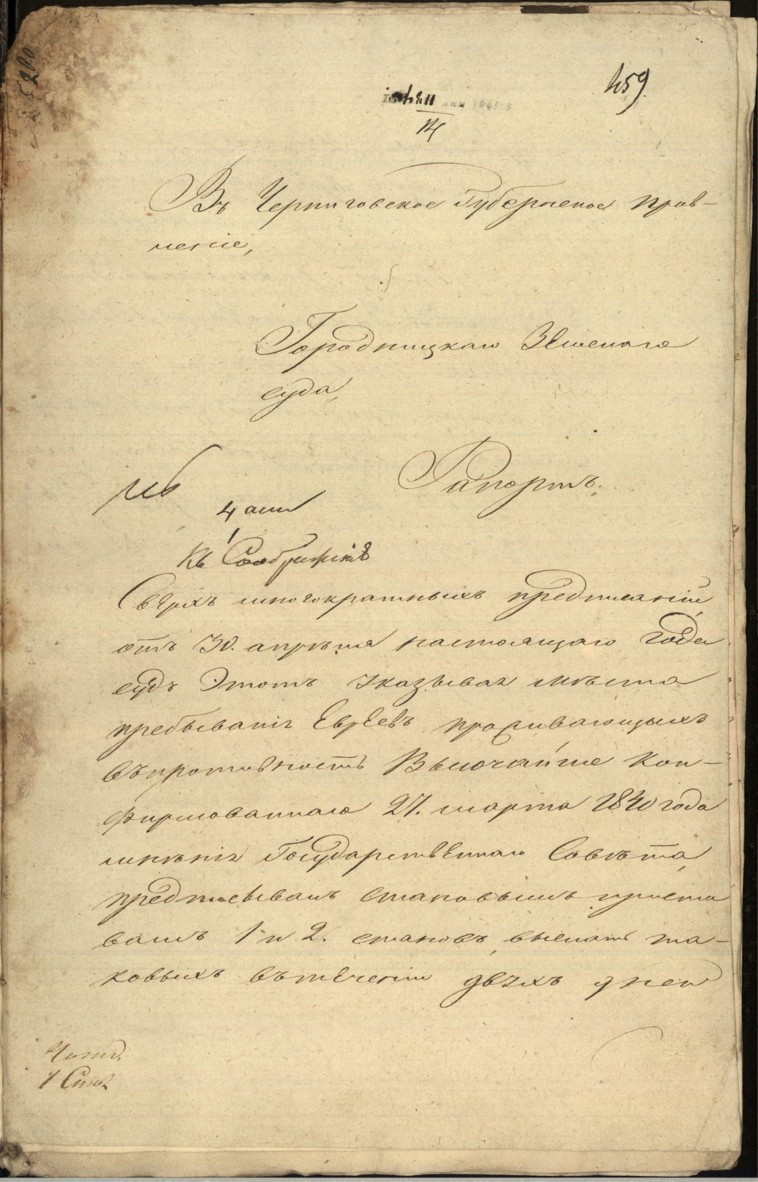 459
14
Въ Черниговское Губернское прав-
ленiе,
Городницкаго Земскаго
суда,
Рапортъ.
4 
Къ
Сверхъ многократныхъ предписанiй
отъ 30. апреля настоящаго года
судъ этотъ указывая места
пребыванiя Евреевъ проживающихъ
въ противность Высочайше кон-
фирмованнаго 27. марта 1840 года
мненiя Государственнаго Совета,
предписывалъ становымъ приста
вамъ 1 и 2. становъ, выслать та-
ковыхъ въ теченiи двухъ дней